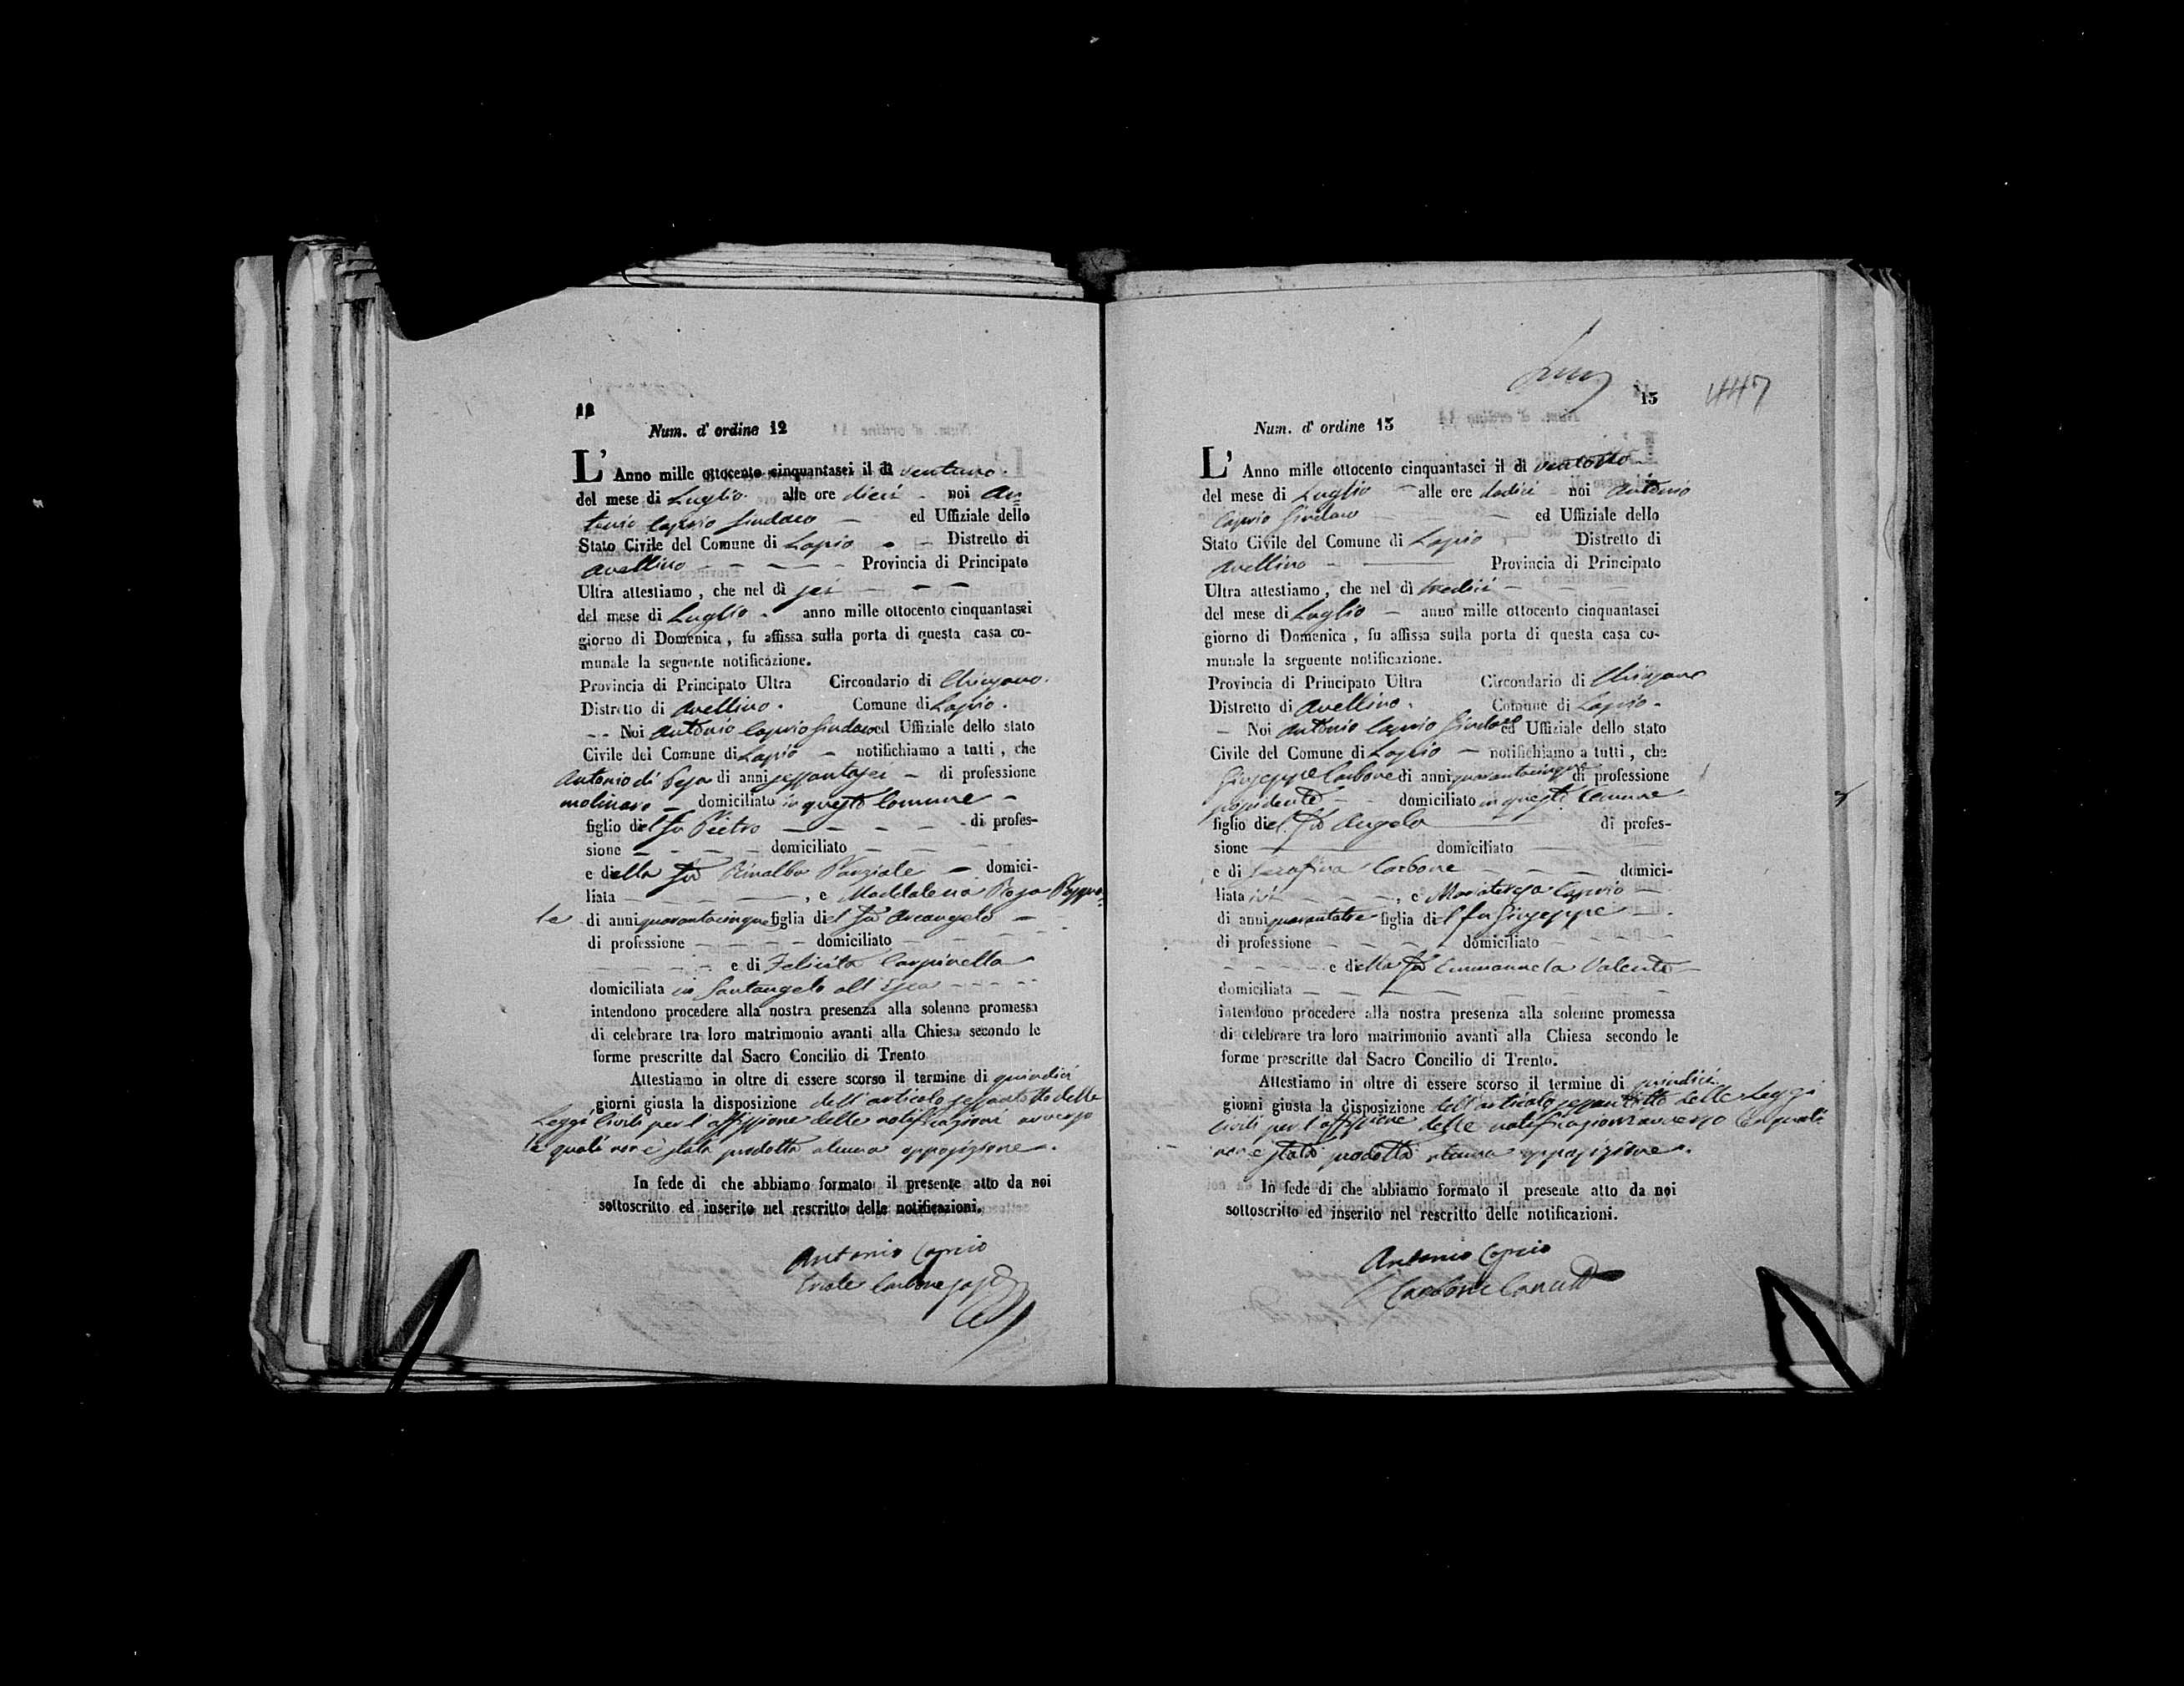 12
Num. d' ordine 12
L' Anno mille ottocento cinquantasei il dì ventuno
del mese di Luglio alle ore dieci noi An=
tonio Caprio Sindaco ed Uffiziale dello
Stato Civile del Comune di Lapio Distretto di
Avellino Provincia di Principato
Ultra attestiamo, che nel dì sei
del mese di Luglio anno mille ottocento cinquantasei
giorno di Domenica, fu affissa sulla porta di questa casa co-
munale la seguente notificazione.
Provincia di Principato Ultra Circondario di Chiusano.
Distretto di Avellino. Comune di Lapio.
Noi Antonio Caprio Sindaco ed Uffiziale dello stato
Civile del Comune di Lapio notifichiamo a tutti, che
Antonio di Pesa di anni sessantasei di professione
molinaro domiciliato in questo Comune
figlio del fu Pietro di profes-
sione domiciliato
e della fu domici-
liata , e Maddalena Rosa
di anni quarantacinque figlia del fu Arcangelo
di professione domiciliato
e di Felicita Carpinella
domiciliata in Santangelo all' Esca
intendono procedere alla nostra presenza alla solenne promessa
di celebrare tra loro matrimonio avanti alla Chiesa secondo le
forme prescritte dal Sacro Concilio di Trento
Attestiamo in oltre di essere scorso il termine di quindici
giorni giusta la disposizione dell'articolo sessantotto delle
Leggi Civili per l'affissione delle notificazioni avverso
le quali non è stata prodotta alcuna opposizione.
In fede di che abbiamo formato il presente atto da noi
sottoscritto ed inserito nel rescritto delle notificazioni.
Antonio Caprio
Carbone
13
447
Num. d' ordine 13
L' Anno mille ottocento cinquantasei il dì ventotto
del mese di Luglio alle ore dodici noi Antonio
Caprio Sindaco ed Uffiziale dello
Stato Civile del Comune di Lapio Distretto di
Avellino Provincia di Principato
Ultra attestiamo, che nel dì tredici
del mese di Luglio anno mille ottocento cinquantasei
giorno di Domenica, fu affissa sulla porta di questa casa co-
munale la seguente notificazione.
Provincia di Principato Ultra Circondario di Chiusano
Distretto di Avellino. Comune di Lapio.
Noi Antonio Caprio Sindaco ed Uffiziale dello stato
Civile del Comune di Lapio notifichiamo a tutti, che
Giuseppe Carbone di anni quarantacinque di professione
possidente domiciliato in questo Comune
figlio del fu Angelo di profes-
sione domiciliato
e di Serafina Carbone domici-
liata ivi , e Mariateresa Caprio
di anni quarantatre figlia del fu Giuseppe
di professione domiciliato
e della fu Emmanuela Valente
domiciliata
intendono procedere alla nostra presenza alla solenne promessa
di celebrare tra loro matrimonio avanti alla Chiesa secondo le
forme prescritte dal Sacro Concilio di Trento.
Attestiamo in oltre di essere scorso il termine di quindici
giorni giusta la disposizione dell'articolo sessantotto delle Leggi
Civili per l'affissione delle notificazioni avverso le quali
non è stata prodotta alcuna opposizione.
In fede di che abbiamo formato il presente atto da noi
sottoscritto ed inserito nel rescritto delle notificazioni.
Antonio Caprio
Carbone